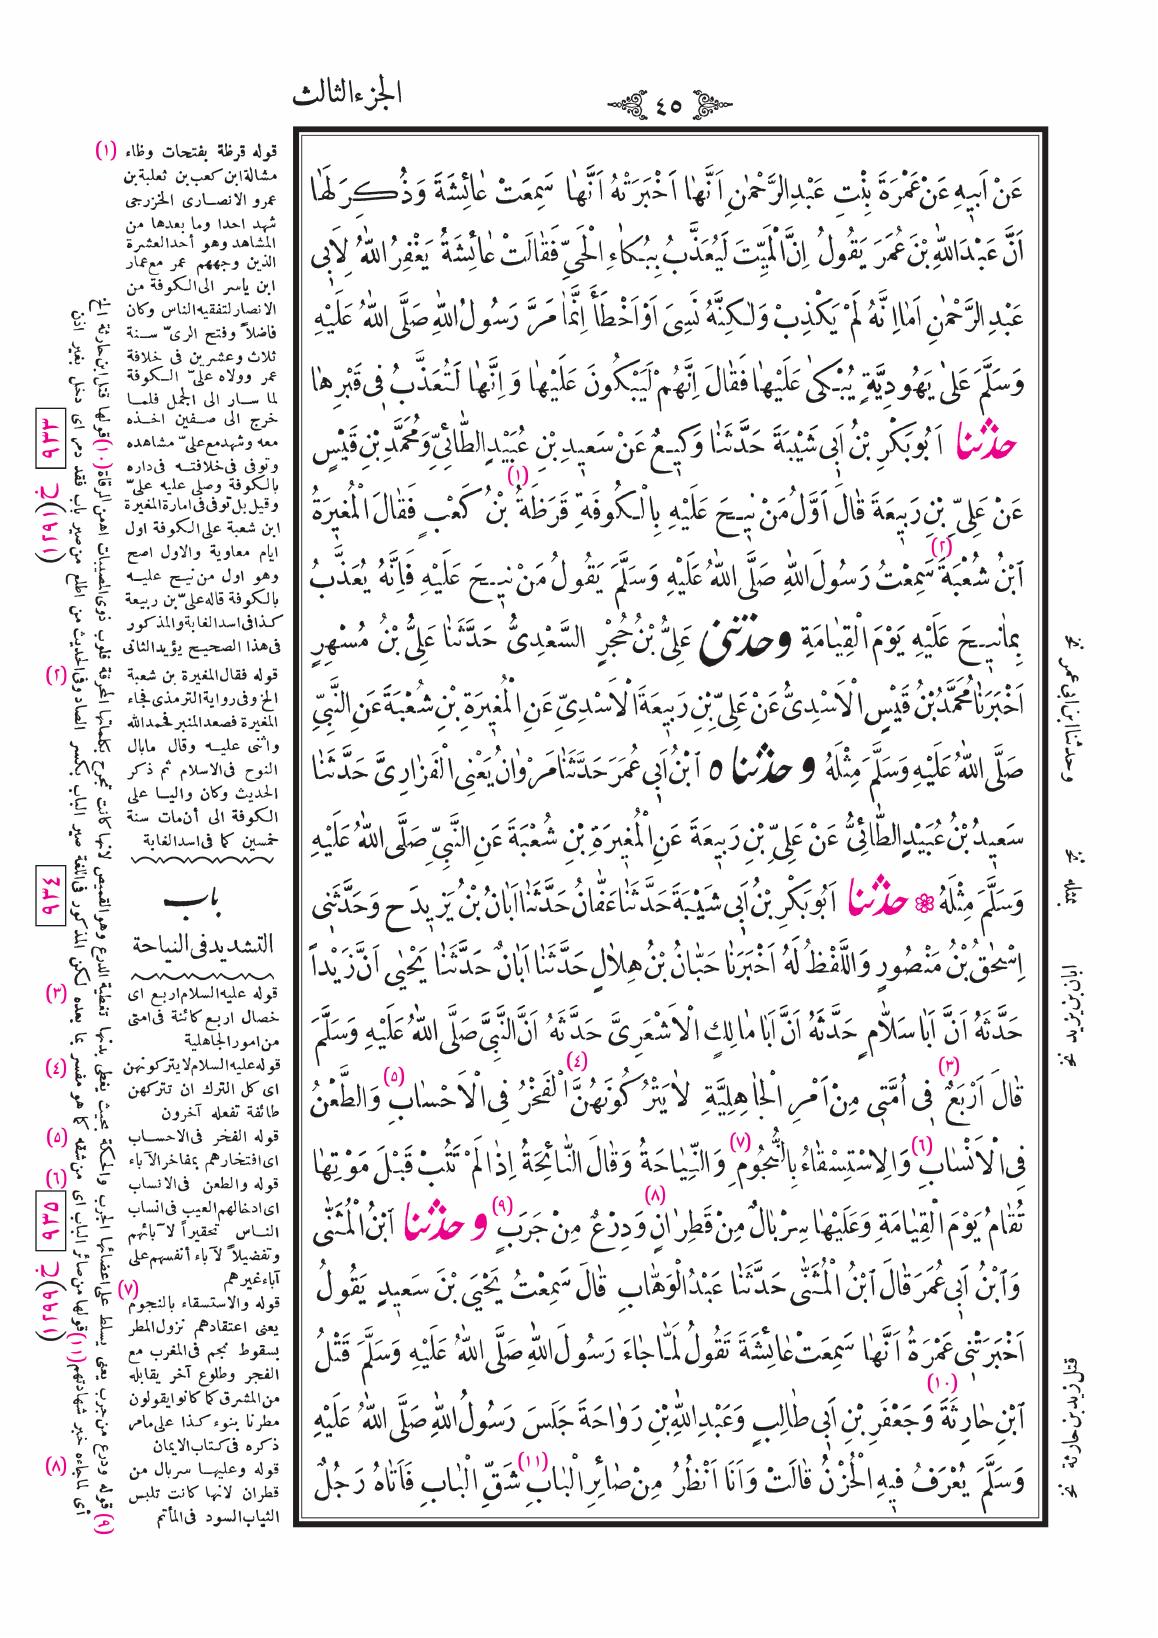 ٤٥
الجزء الثالث
عَنْ اَبيهِ عَنْ عَمْرَةَ بِنْتِ عَبْدِالرَّحْمٰنِ اَنَّهٰا اَخْبَرَتْهُ اَنَّهٰا سَمِعَتْ عٰائِشَةَ وَذُكِرَ لَهٰا
اَنَّ عَبْدَاللهِ بْنَ عُمَرَ يَقُولُ اِنَّ الْمَيِّتَ لَيُعَذَّبُ بِبُكٰاءِ الْحَىِّ فَقٰالَتْ عٰائِشَةُ يَغْفِرُ اللهُ لِاَبى
عَبْدِ الرَّحْمٰنِ اَمٰا اِنَّهُ لَمْ يَكْذِبْ وَلٰكِنَّهُ نَسِىَ اَوْ اَخْطَأَ اِنَّمٰا مَرَّ رَسُولُ اللهِ صَلَّى اللهُ عَلَيْهِ
وَسَلَّمَ عَلىٰ يَهُودِيَّةٍ يُبْكىٰ عَلَيْهٰا فَقٰالَ اِنَّهُمْ لَيَبْكُونَ عَلَيْهٰا وَاِنَّهٰا لَتُعَذَّبُ فى قَبْرِهٰا
حدثنا اَبُو بَكْرِ بْنُ اَبى شَيْبَةَ حَدَّثَنٰا وَكيعٌ عَنْ سَعيدِ بْنِ عُبَيْدٍ الطّٰائِىِّ وَمُحَمَّدِ بْنِ قَيْسٍ
عَنْ عَلِىِّ بْنِ رَبيعَةَ قٰالَ اَوَّلُ مَنْ نيحَ عَلَيْهِ بِالْكُوفَةِ قَرَظَةُ (١) بْنُ كَعْبٍ فَقٰالَ الْمُغيرَةُ
ابْنُ شُعْبَةَ (٢) سَمِعْتُ رَسُولَ اللهِ صَلَّى اللهُ عَلَيْهِ وَسَلَّمَ يَقُولُ مَنْ نيحَ عَلَيْهِ فَاِنَّهُ يُعَذَّبُ
بِمٰا نيحَ عَلَيْهِ يَوْمَ الْقِيٰامَةِ وحدثنى عَلِىُّ بْنُ حُجْرٍ السَّعْدِىُّ حَدَّثَنٰا عَلِىُّ بْنُ مُسْهِرٍ
اَخْبَرَنٰا مُحَمَّدُ بْنُ قَيْسٍ الْاَسْدِىُّ عَنْ عَلِىِّ بْنِ رَبيعَةَ الْاَسْدِىِّ عَنِ الْمُغيرَةِ بْنِ شُعْبَةَ عَنِ النَّبِىِّ
صَلَّى اللهُ عَلَيْهِ وَسَلَّمَ مِثْلَهُ وحدثناه ابْنُ اَبى عُمَرَ حَدَّثَنٰا مَرْوٰانُ يَعْنِى الْفَزٰارِىَّ حَدَّثَنٰا
سَعيدُ بْنُ عُبَيْدٍ الطّٰائِىُّ عَنْ عَلِىِّ بْنِ رَبيعَةَ عَنِ الْمُغيرَةِ بْنِ شُعْبَةَ عَنِ النَّبِىِّ صَلَّى اللهُ عَلَيْهِ
وَسَلَّمَ مِثْلَهُ حدثنا اَبُو بَكْرِ بْنُ اَبى شَيْبَةَ حَدَّثَنٰا عَفّٰانُ حَدَّثَنٰا اَبٰانُ بْنُ يَزيدَ ح وَحَدَّثَنى
اِسْحٰقُ بْنُ مَنْصُورٍ وَاللَّفْظُ لَهُ اَخْبَرَنٰا حَبّٰانُ بْنُ هِلٰالٍ حَدَّثَنٰا اَبٰانٌ حَدَّثَنٰا يَحْيٰى اَنَّ زَيْداً
حَدَّثَهُ اَنَّ اَبٰا سَلّٰامٍ حَدَّثَهُ اَنَّ اَبٰا مٰالِكٍ الْاَشْعَرِىَّ حَدَّثَهُ اَنَّ النَّبِىَّ صَلَّى اللهُ عَلَيْهِ وَسَلَّمَ
قٰالَ اَرْبَعٌ (٣) فى اُمَّتى مِنْ اَمْرِ الْجٰاهِلِيَّةِ لٰا يَتْرُكُونَهُنَّ (٤) الْفَخْرُ فِى الْاَحْسٰابِ (٥) وَالطَّعْنُ
فِى الْاَنْسٰابِ (٦) وَالِاسْتِسْقٰاءُ بِالنُّجُومِ (٧) وَالنِّيٰاحَةُ وَقٰالَ النّٰائِحَةُ اِذٰا لَمْ تَتُبْ قَبْلَ مَوْتِهٰا
تُقٰامُ يَوْمَ الْقِيٰامَةِ وَعَلَيْهٰا سِرْبٰالٌ مِنْ قَطِرٰانٍ (٨) وَدِرْعٌ مِنْ جَرَبٍ (٩) وحدثنا ابْنُ الْمُثَنّٰى
وَابْنُ اَبى عُمَرَ قٰالَ ابْنُ الْمُثَنّٰى حَدَّثَنٰا عَبْدُ الْوَهّٰابِ قٰالَ سَمِعْتُ يَحْيَى بْنَ سَعيدٍ يَقُولُ
اَخْبَرَتْنى عَمْرَةُ اَنَّهٰا سَمِعَتْ عٰائِشَةَ تَقُولُ لَمّٰا جٰاءَ رَسُولَ اللهِ صَلَّى اللهُ عَلَيْهِ وَسَلَّمَ قَتْلُ
ابْنِ حٰارِثَةَ (١٠) وَجَعْفَرِ بْنِ اَبى طٰالِبٍ وَعَبْدِ اللهِ بْنِ رَوٰاحَةَ جَلَسَ رَسُولُ اللهِ صَلَّى اللهُ عَلَيْهِ
وَسَلَّمَ يُعْرَفُ فيهِ الْحُزْنُ قٰالَتْ وَاَنَا اَنْظُرُ مِنْ صٰائِرِ الْبٰابِ (١١) شَقِّ الْبٰابِ فَاَتٰاهُ رَجُلٌ
(١) قوله قرظة بفتحات وظاء
مشالة ابن كعب بن ثعلبة بن
عمرو الانصارى الخزرجى
شهد احدا وما بعدها من
المشاهد وهو أحد العشرة
الذين وجههم عمر مع عمار
ابن ياسر الى الكوفة من
الانصار لتفقيه الناس وكان
فاضلاً وفتح الرىّ سنة
ثلاث وعشرين فى خلافة
عمر وولاه علىّ الكوفة
لما سار الى الجمل فلما
خرج الى صفين اخذه
معه وشهد مع علىّ مشاهده
وتوفى فى خلافته فى داره
بالكوفة وصلى عليه علىّ
وقيل بل توفى فى امارة المغيرة
ابن شعبة على الكوفة اول
ايام معاوية والاول اصح
وهو اول من نيح عليه
بالكوفة قاله علىّ بن ربيعة
كذا فى اسد الغابة والمذكور
فى هذا الصحيح يؤيد الثانى
(٢) قوله فقال المغيرة بن شعبة
الخ وفى رواية الترمذى فجاء
المغيرة فصعد المنبر فحمد الله
واثنى عليه وقال ما بال
النوح فى الاسلام ثم ذكر
الحديث وكان واليا على
الكوفة الى أن مات سنة
خمسين كما فى اسد الغابة
باب
التشديد فى النياحة
(٣) قوله عليه السلام اربع اى
خصال اربع كائنة فى امتى
من امور الجاهلية
(٤) قوله عليه السلام لا يتركونهن
اى كل الترك ان تتركهن
طائفة تفعله آخرون
(٥) قوله الفخر فى الاحساب
اى افتخارهم بمفاخر الآباء
(٦) قوله والطعن فى الانساب
اى ادخالهم العيب فى انساب
الناس تحقيراً لآبائهم
وتفضيلاً لآباء أنفسهم على
آباء غيرهم
(٧) قوله والاستسقاء بالنجوم
يعنى اعتقادهم نزول المطر
بسقوط نجم فى المغرب مع
الفجر وطلوع آخر يقابله
من المشرق كما كانوا يقولون
مطرنا بنوء كذا على ما مر
ذكره فى كتاب الايمان
(٨) قوله وعليها سربال من
قطران لانها كانت تلبس
الثياب السود فى المأتم
(٩) قوله ودرع من جرب يعنى يسلط على اعضائها الجرب والحكة بحيث يغطى بدنها تغطية الدرع وهو القميص لانها كانت تجرح بكلماتها المحرقة قلوب ذوى المصيبات اهـ من المرقاة (١٠) قولها قتل ابن حارثة الخ
أى لما جاءه خبر شهادتهم (١١) قولها من صائر الباب اى من شقه كما هو مفسر بما بعده لكن المذكور فى اللغة صير الباب بكسر الصاد وفى الحديث من اطلع من صير باب فقد دمر اى دخل بغير اذن
٩٣٣
٩٣٤
٩٣٥
وحدثنا ابن ابى عمر نخ
مثله نخ
ابان بن يزيد نخ
قتل زيد بن حارثة نخ